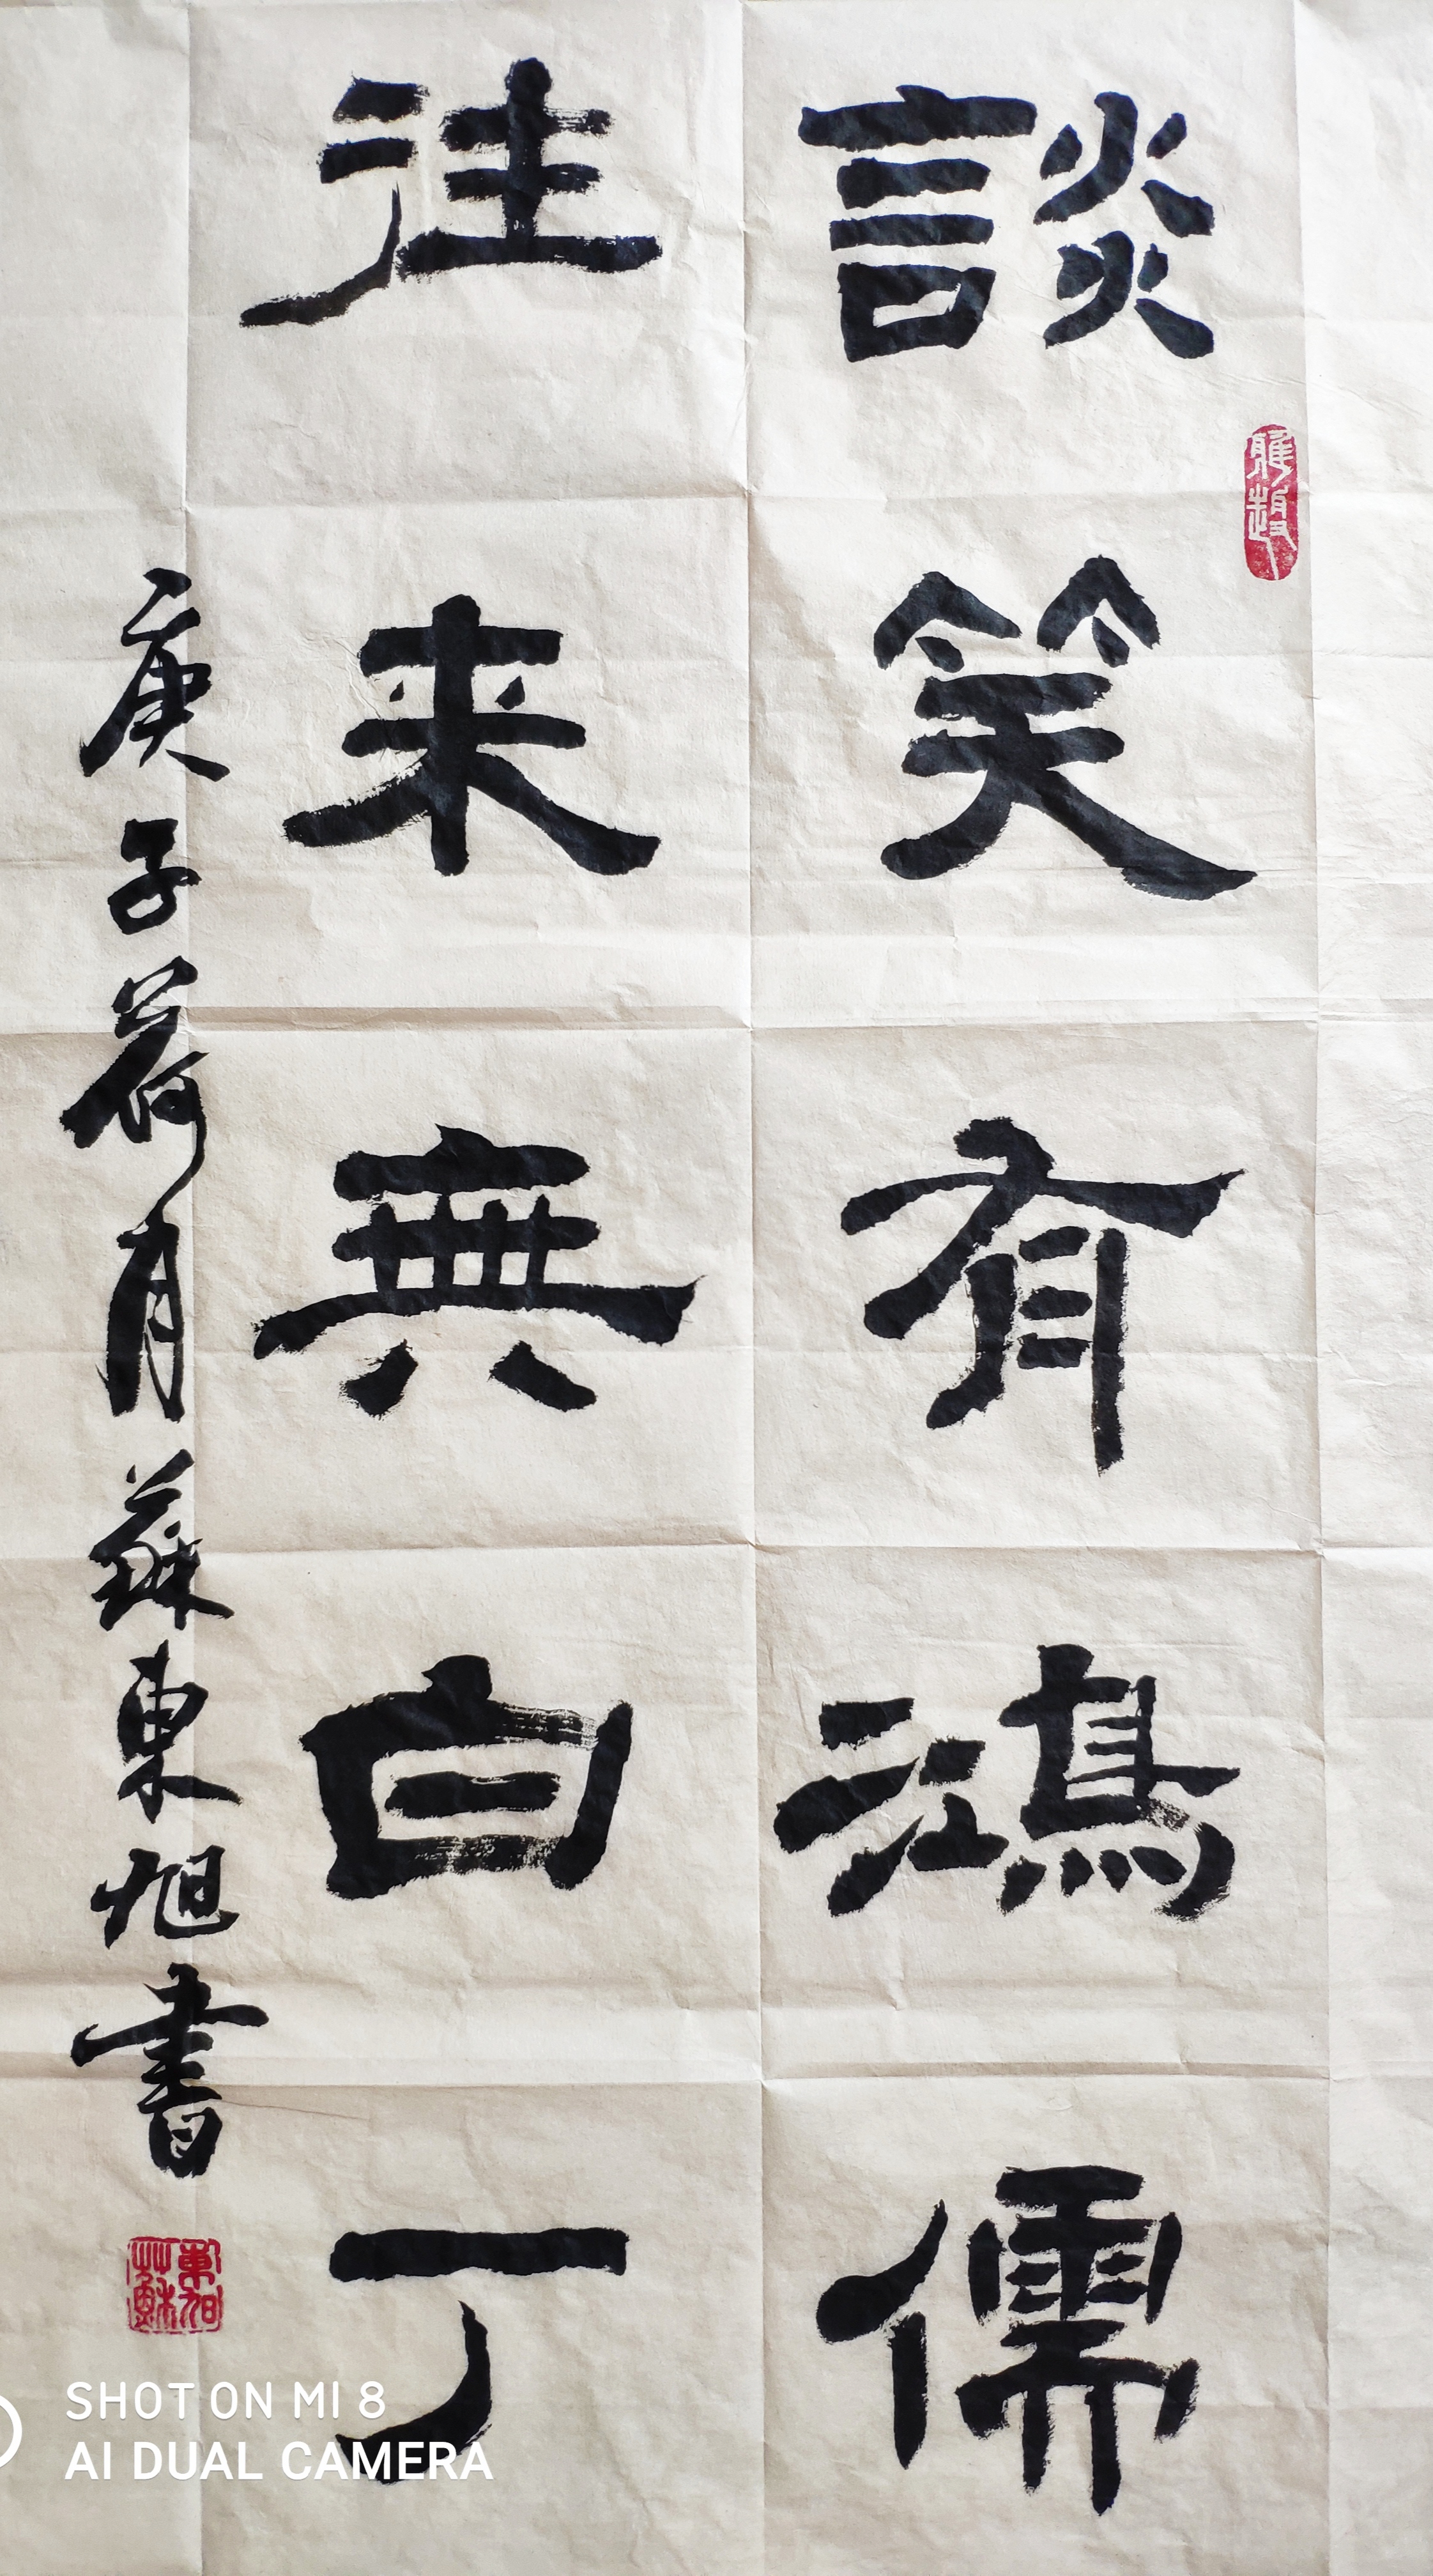 談笑有鴻儒
往来無白丁
庚子荷月蘇東旭書
雅趣
SHOT ON MI 8
AI DUAL CAMERA